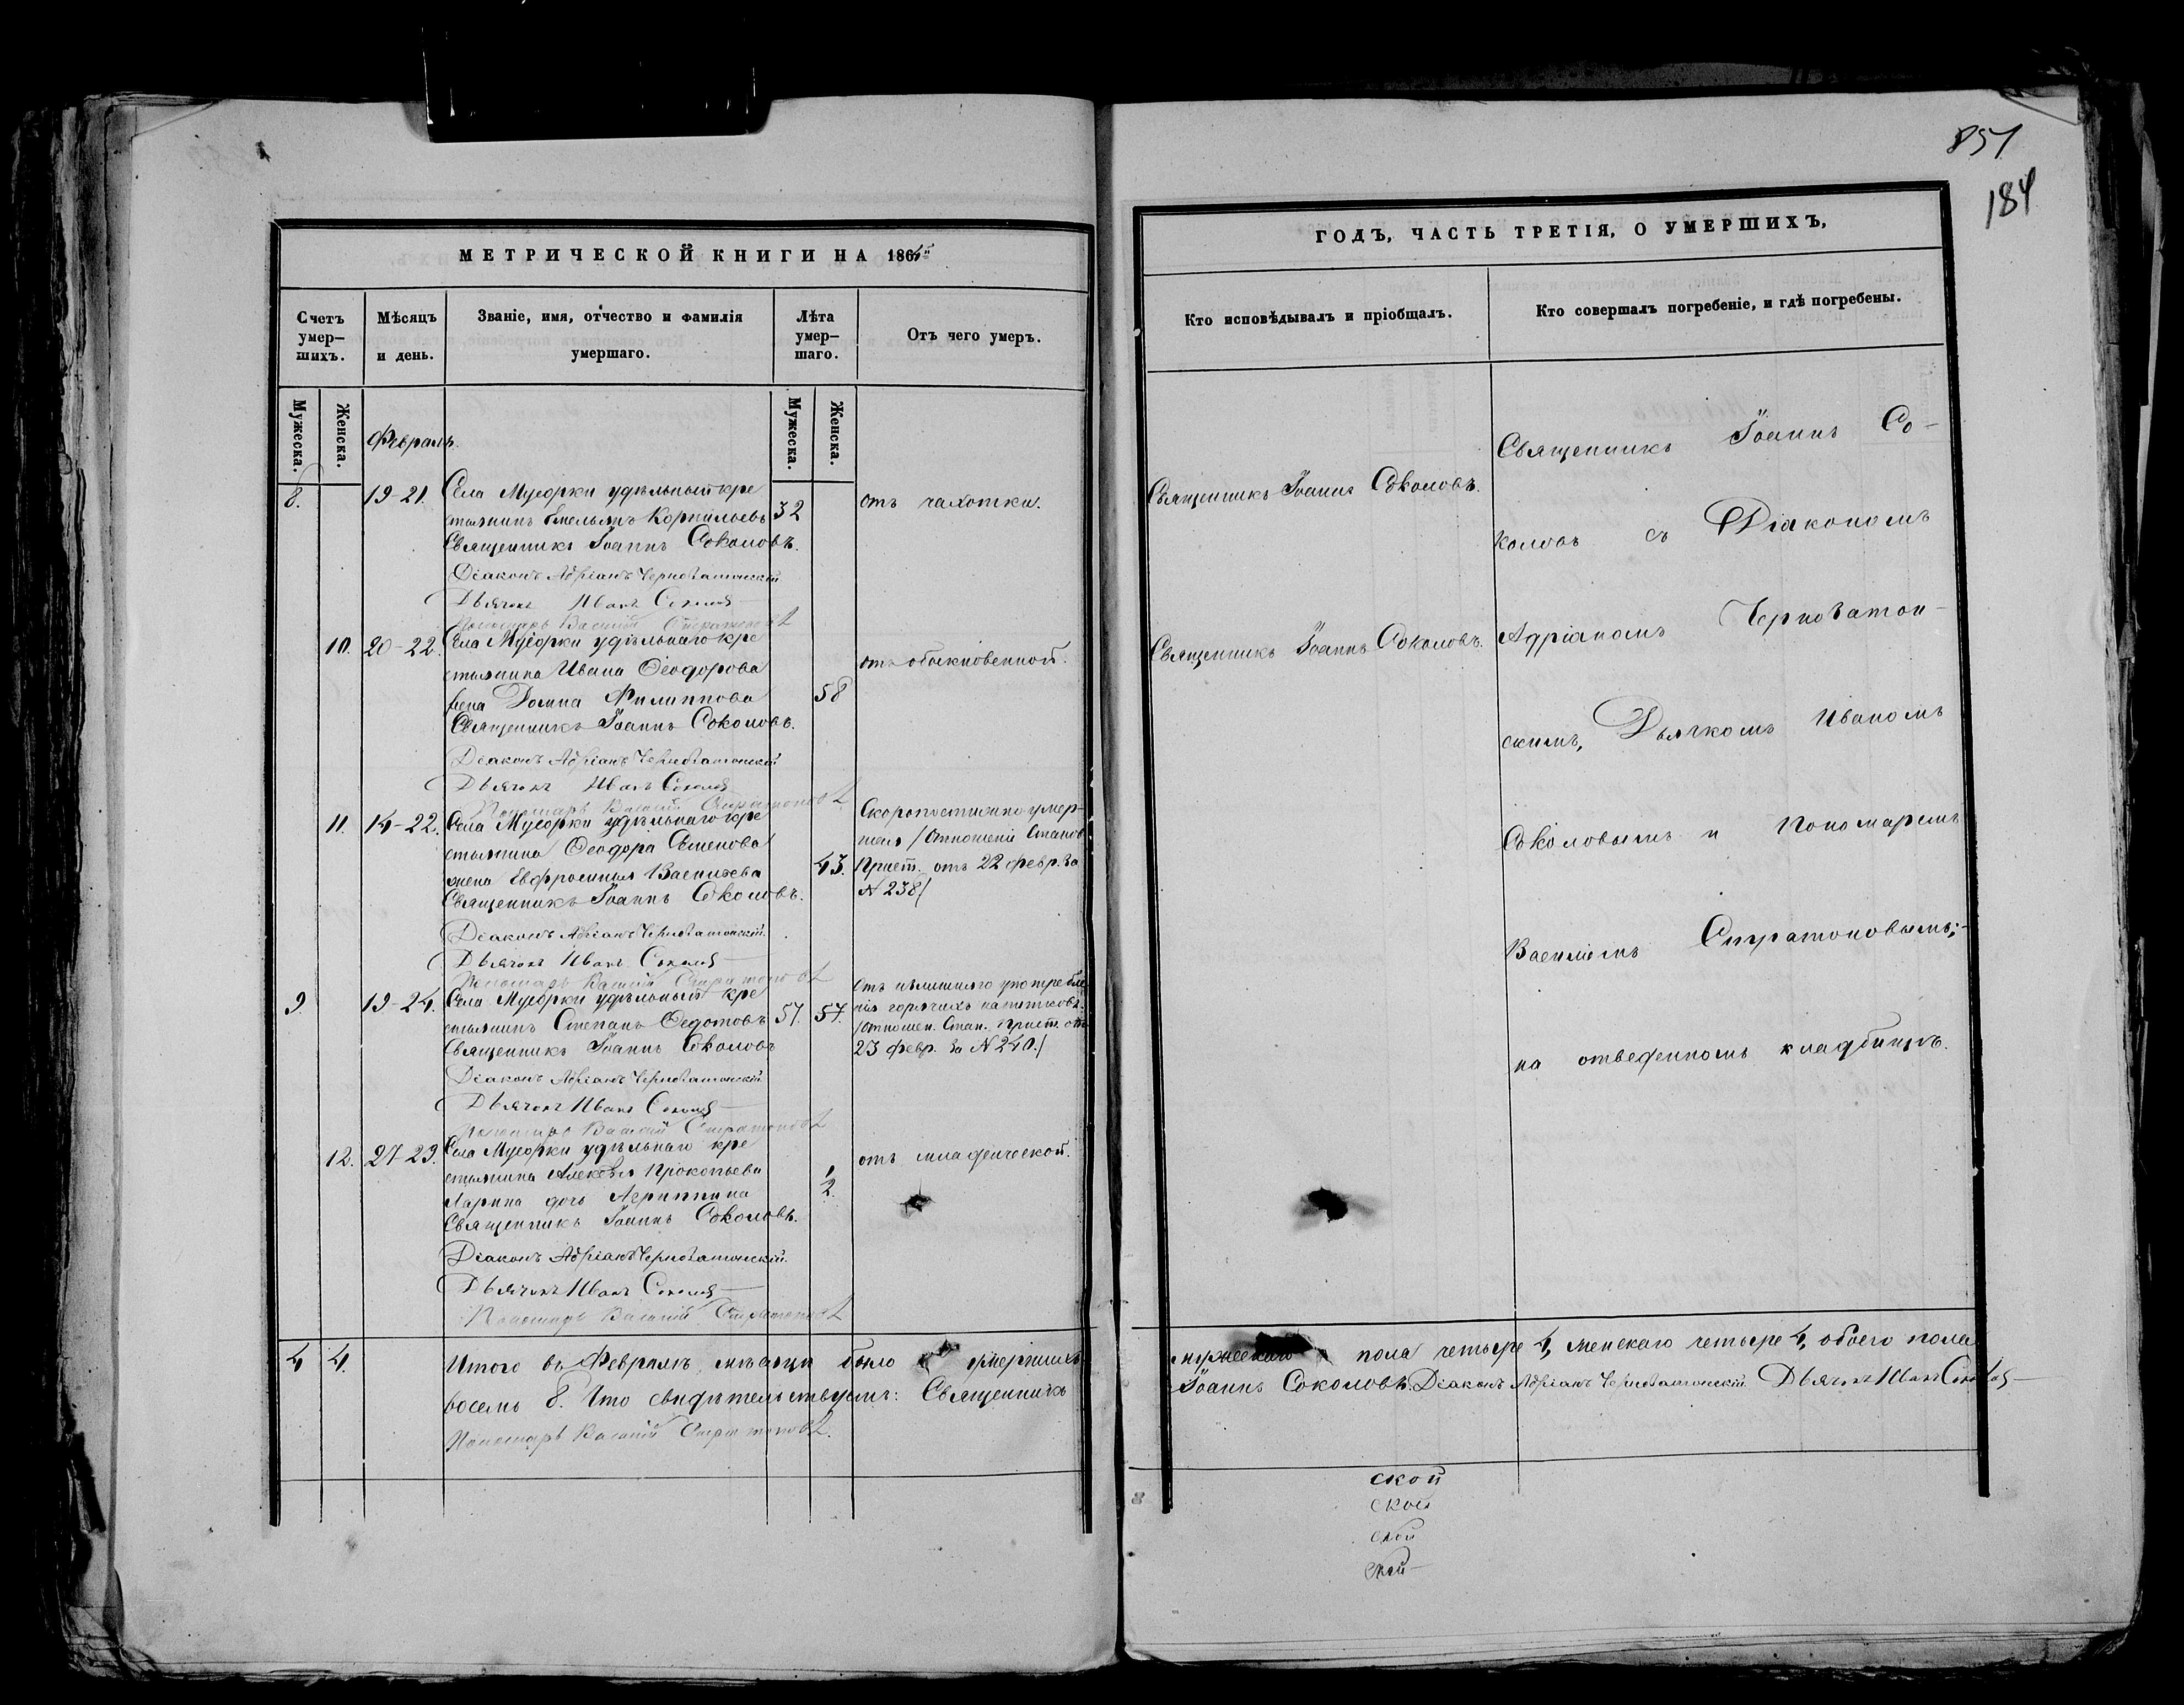 857
184
МЕТРИЧЕСКОЙ КНИГИ НА 1865
ГОДЪ, ЧАСТЬ ТРЕТІЯ, О УМЕРШИХЪ,
Счетъ умер-шихъ.
Мѣсяцъ и день.
Званіе, имя, отчество и фамилія умершаго.
Лѣта умер-шаго.
Отъ чего умеръ.
Кто исповѣдывалъ и пріобщалъ.
Кто совершалъ погребеніе, и гдѣ погребены.
Мужеска.
Женска.
Мужеска.
Женска.
Февраль.
8. 19-21. Села Мусорки удѣльный кре
стьянинъ Емельянъ Корнильевъ 32 отъ чахотки.
Священникъ Іоаннъ Соколовъ.
Діаконъ Адріанъ Черноватонскій
Дьячекъ Иванъ Соколовъ
Пономарь Василій Стратоновъ
Священникъ Іоаннъ Соколовъ.
10. 20-22. Села Мусорки удѣльнаго кре
стьянина Ивана Ѳеодорова отъ обыкновенной.
жена Домна Филиппова 58
Священникъ Іоаннъ Соколовъ.
Діаконъ Адріанъ Черноватонскій
Дьячекъ Иванъ Соколовъ
Пономарь Василій Стратоновъ
Священникъ Іоаннъ Соколовъ.
11. 14-22. Села Мусорки удѣльнаго кре
стьянина Ѳеодора Семенова
жена Евфросинья Васильева 43.
Священникъ Іоаннъ Соколовъ.
Скоропостижно умер-
шая /Отношеніе Станов
Прист. отъ 22 февр. за
№ 238/
Діаконъ Адріанъ Черноватонскій.
Дьячекъ Иванъ Соколовъ
Пономарь Василій Стратоновъ
9. 19-24. Села Мусорки удѣльный кре
стьянинъ Степанъ Ѳедотовъ 57. 57.
Священникъ Іоаннъ Соколовъ
отъ излишняго употребле
нія горячихъ напитковъ.
/Отношен. Стан. Прист. отъ
23 февр. за № 240./
Діаконъ Адріанъ Черноватонскій
Дьячекъ Иванъ Соколовъ
Пономарь Василій Стратоновъ
12. 27-29. Села Мусорки удѣльнаго кре
стьянина Алексѣя Прокопьева 1/2. отъ младенческой.
Ларина дочь Агриппина
Священникъ Іоаннъ Соколовъ.
Діаконъ Адріанъ Черноватонскій.
Дьячекъ Иванъ Соколовъ
Пономарь Василій Стратоновъ
Священникъ Іоаннъ Со-
коловъ съ Діакономъ
Адріаномъ Черноватон-
скимъ, Дьячкомъ Иваномъ
Соколовымъ и Пономаремъ
Василіемъ Стратоновымъ;-
на отведенномъ кладбищѣ.
4 4. Итого въ Февралѣ мѣсяцѣ было умершихъ мужескаго пола четыре 4, женскаго четыре 4, обоего пола
восемь 8. Что свидѣтельствуемъ: Священникъ Іоаннъ Соколовъ. Діаконъ Адріанъ Черноватонскій. Дьячекъ Иванъ Соколовъ
Пономарь Василій Стратоновъ.
ской
ской
ской
ской